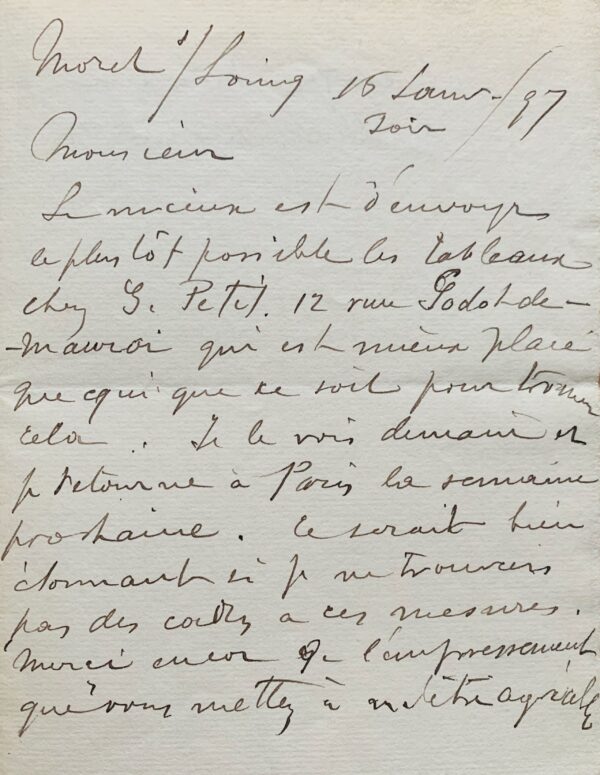 Moret s/ Loing 16 Janv-/97
Soir
Monsieur
Le mieux est d'envoyer
le plus tôt possible les tableaux
chez G. Petit. 12 rue Godot-de-
-Mauroi qui est mieux placé
que qui que ce soit pour trouver
cela. Je le vois demain et
je retourne à Paris la semaine
prochaine. Ce serait bien
étonnant si je ne trouvais
pas des cadres a ces mesures.
Merci encor de l'empressement
que vous mettez à m'être agréable